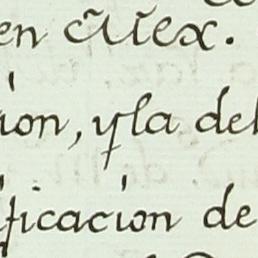 en
ion, y la del
ificacion de